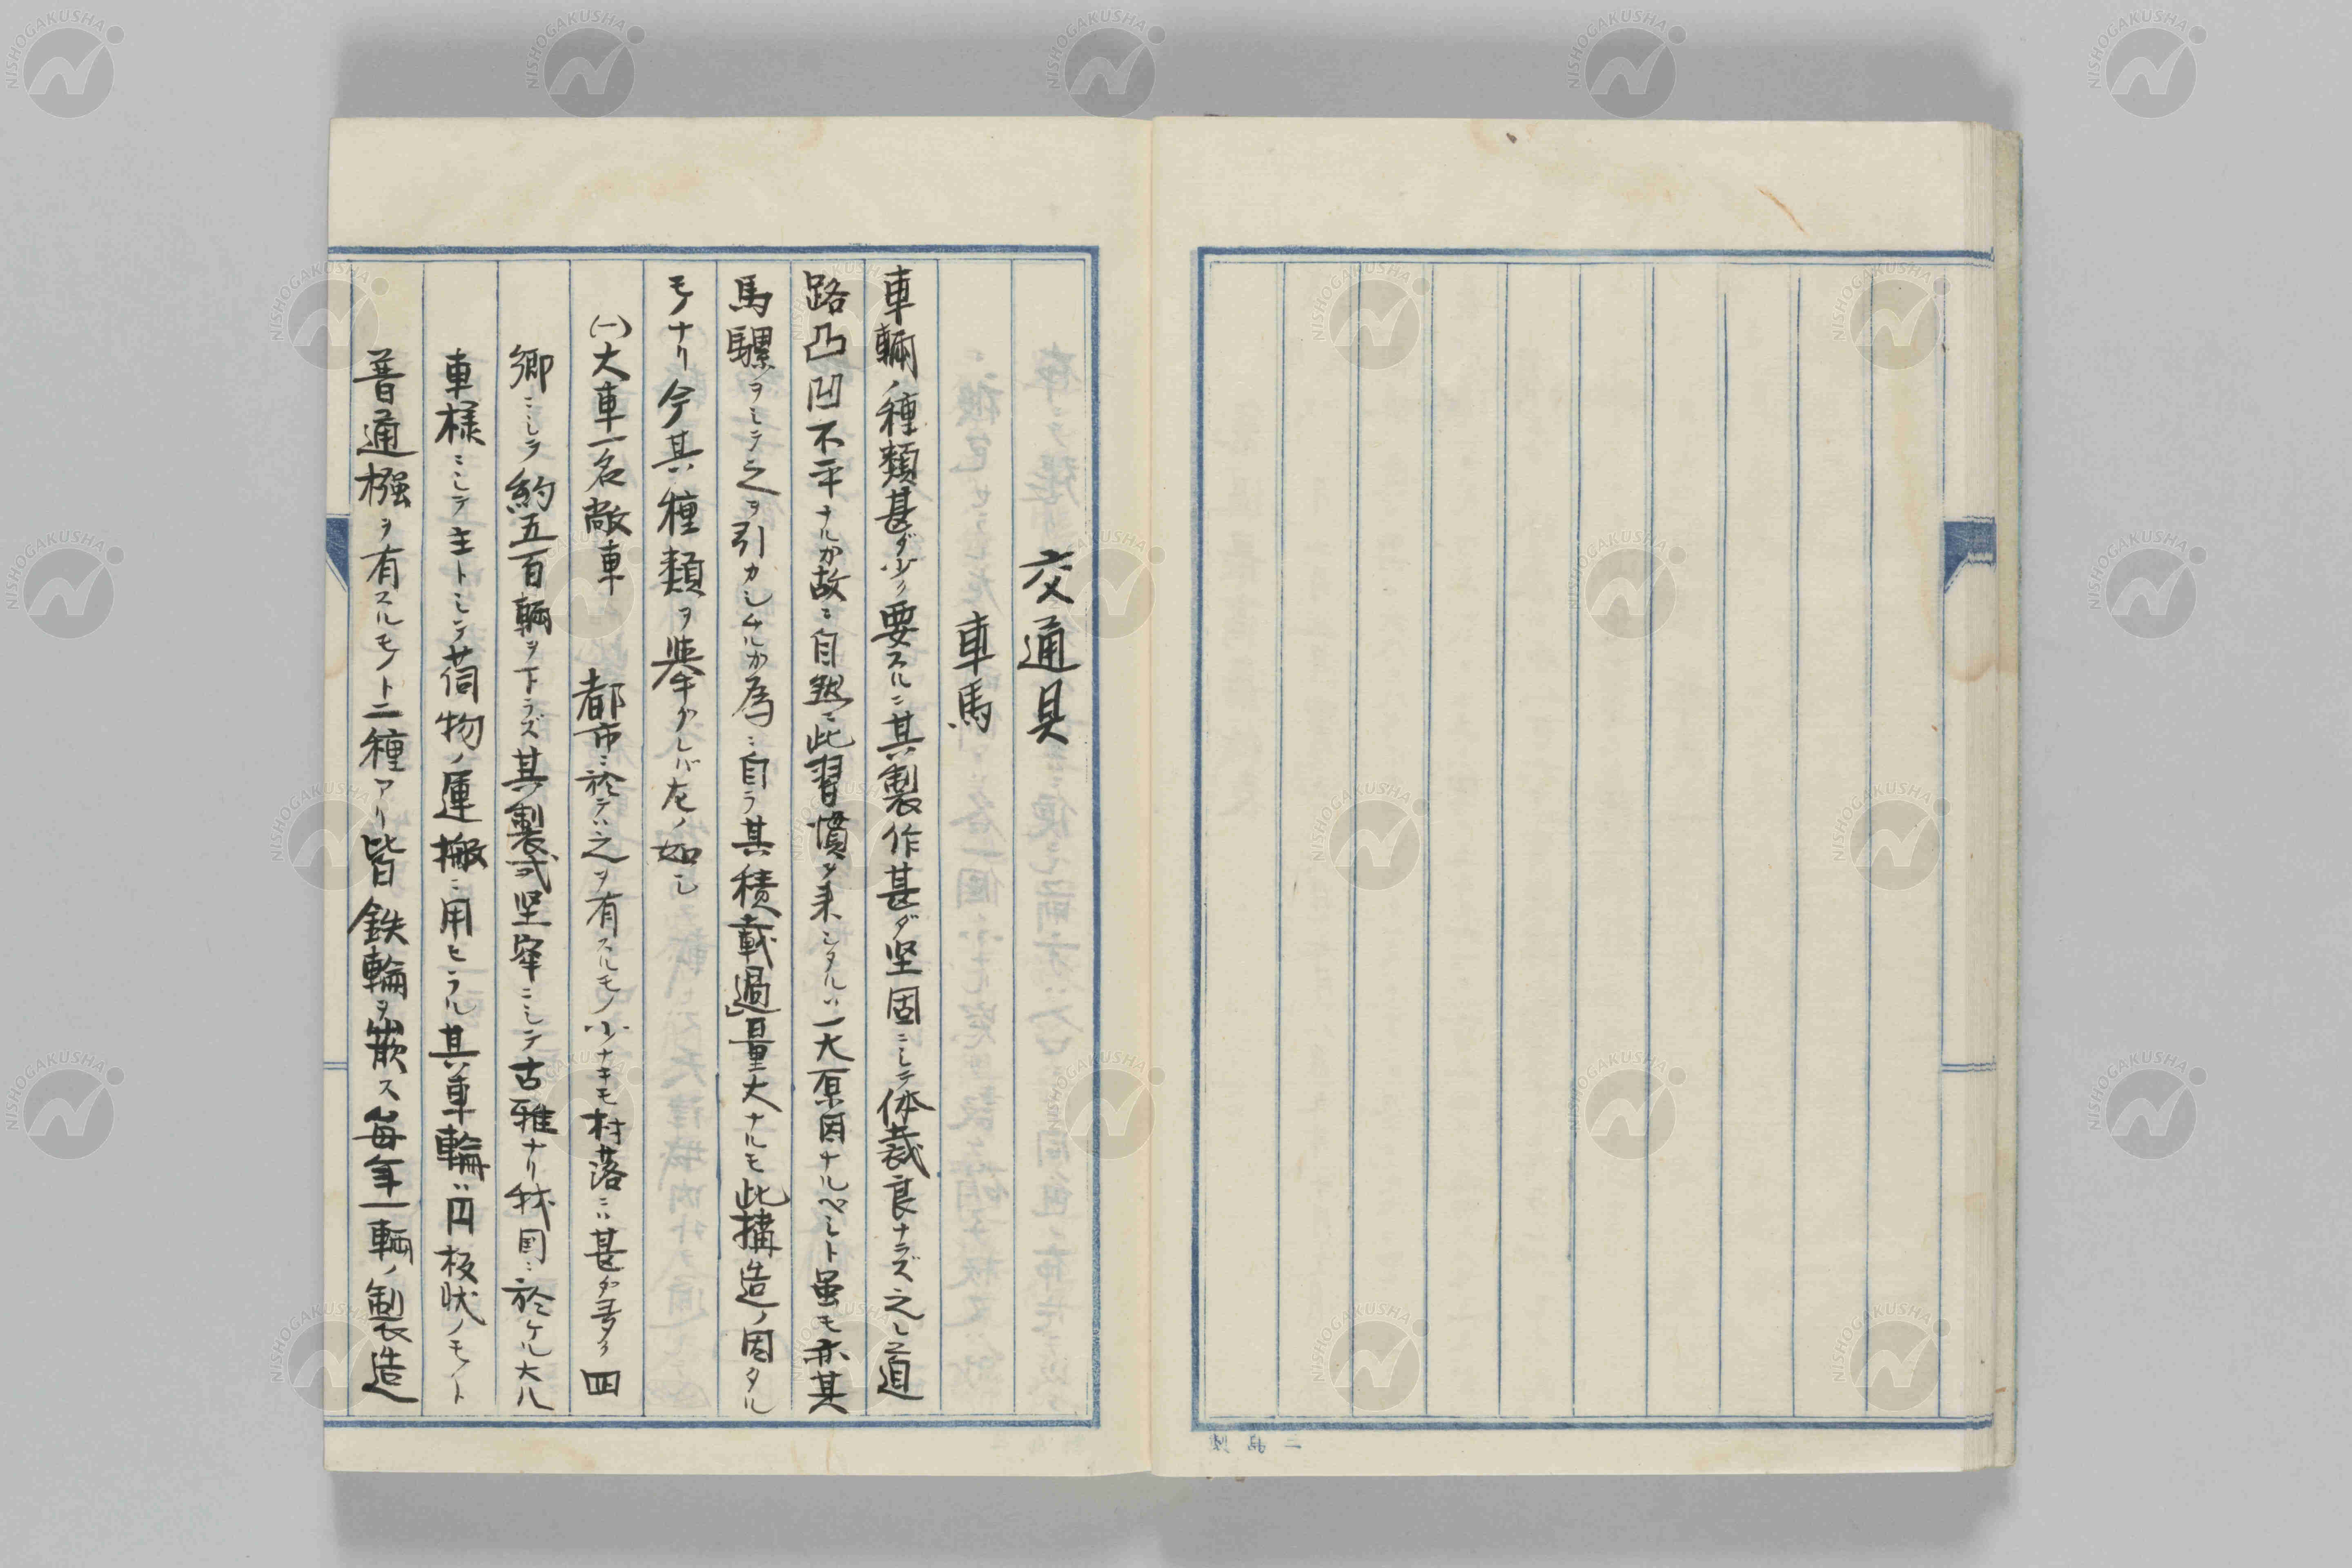 交通具
車馬
車輛ノ種類甚ダ少ク要スルニ其製作甚ダ堅固ニシテ体裁良ナラズ之レ道
路凸凹不平ナルカ故ニ自然ニ此習慣ヲ来シタルハ一大原因ナルベシト虽モ亦其
馬騾ヲシテ之ヲ引カシムルカ為ニ自ラ其積載過量大ナルモ此構造ノ因タル
モノナリ今其種類ヲ挙グレバ左ノ如シ
(一)大車一名敞車 都市ニ於テハ之ヲ有スルモノ少ナキモ村落ニハ甚ダ多ク四
郷ニシテ約五百輛ヲ下ラズ其製式堅牢ニシテ古雅ナリ我国ニ於ケル大八
車様ニシテ主トシテ荷物ノ運搬ニ用ヒラル其車輪ハ円板状ノモノト
普通橿ヲ有スルモノト二種アリ皆鉄輪ヲ嵌ス毎年一輛ノ製造
NISHOGAKUSHA